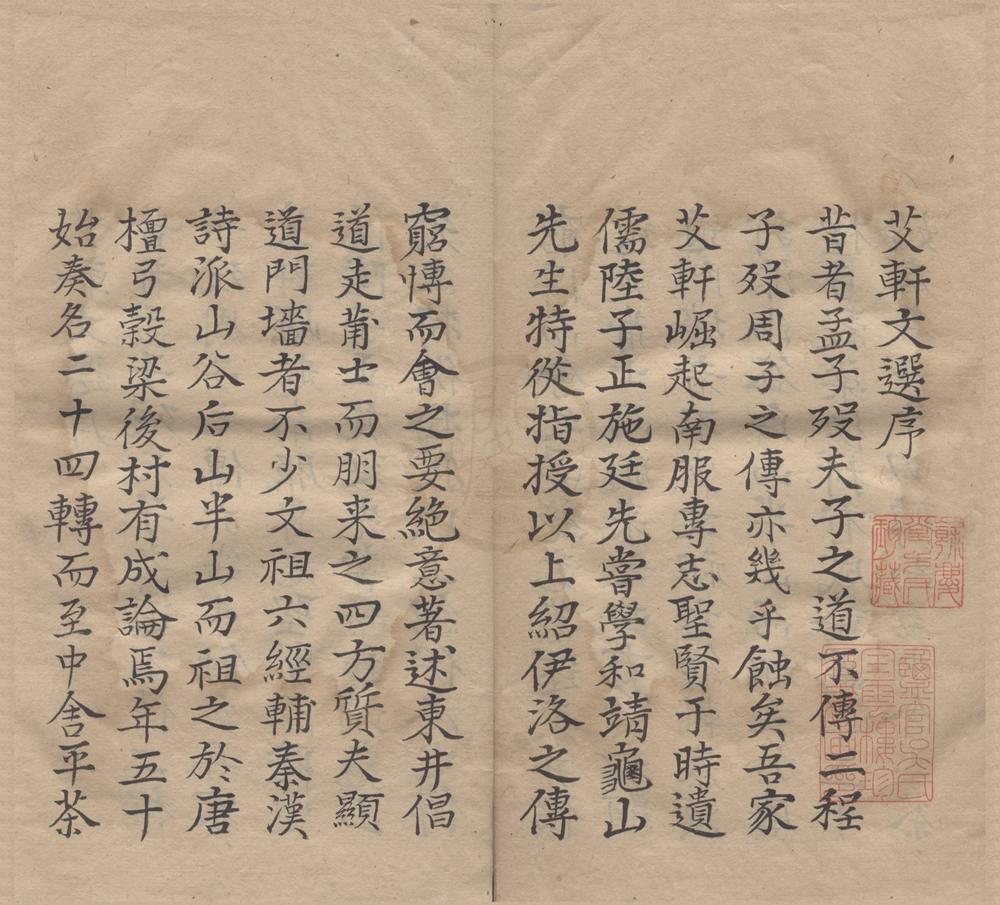 艾軒文選序
昔者孟子歿夫子之道不傳二程
子歿周子之傳亦幾乎蝕矣吾家
艾軒崛起南服專志聖賢于時遺
儒陸子正施廷先嘗學和靖龜山
先生特從指授以上紹伊洛之傳
窮慱而會之要絕意著述東井倡
道走莆士而朋来之四方質夫顯
道門墻者不少文祖六經輔秦漢
詩派山谷后山半山而祖之於唐
檀弓穀梁後村有成論焉年五十
始奏名二十四轉而至中舍平茶